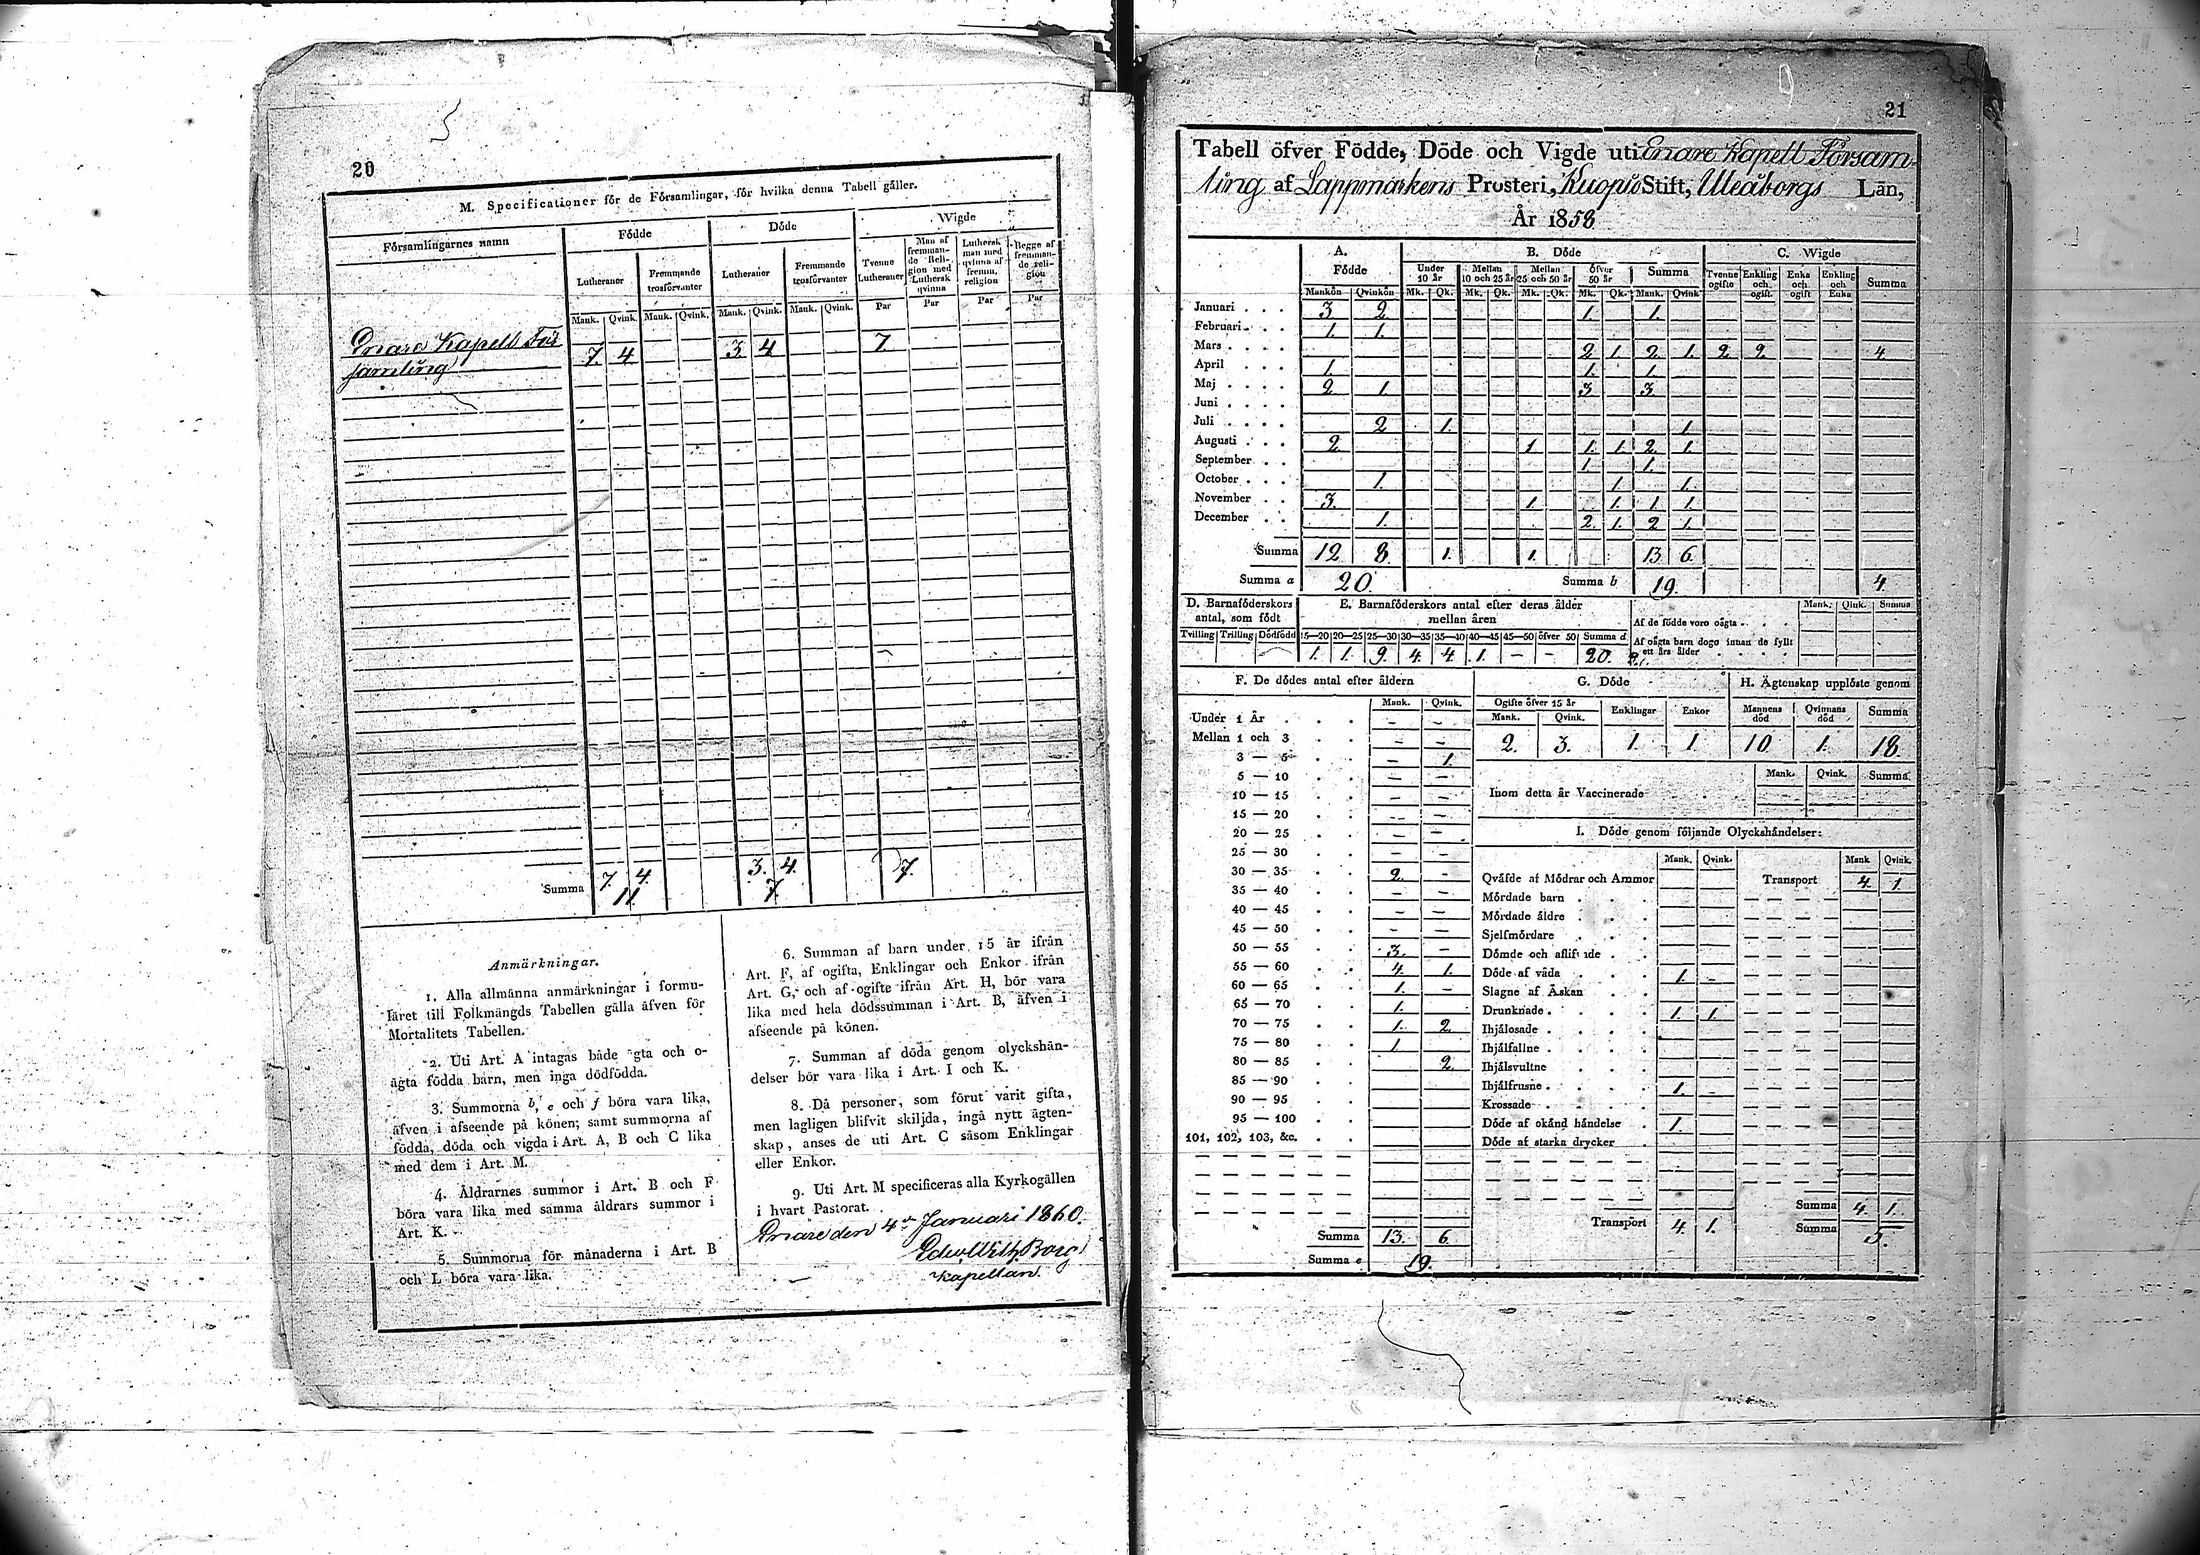 20
M. Specificationer för de Församlingar, för hvilka denna Tabell gäller.
Församlingarnes namn
Födde
Döde
Wigde
Lutheraner
Fremmande trosförvanter
Lutheraner
Fremmande trosförvanter
Tvenne Lutheraner
Man af fremmande Religion med Luthersk qvinna
Luthersk man med qvinna af fremm. religion
Begge af fremmande religion
Mank. Qvink. Mank. Qvink. Mank. Qvink. Mank. Qvink. Par Par Par Par
Enare Kapell För
samling
7. 4 3. 4 7.
Summa 7. 4. 3. 4. 7.
11 7.
Anmärkningar.
1. Alla allmänna anmärkningar i formu-
läret till Folkmängds Tabellen gälla äfven för
Mortalitets Tabellen.
2. Uti Art. A intagas både ägta och o-
ägta födda barn, men inga dödfödda.
3. Summorna b, e och f böra vara lika,
äfven i afseende på könen; samt summorna af
födda, döda och vigda i Art. A, B och C lika
med dem i Art. M.
4. Åldrarnes summor i Art. B och F
böra vara lika med samma åldrars summor i
Art. K.
5. Summorna för månaderna i Art. B
och L böra vara lika.
6. Summan af barn under 15 år ifrån
Art. F, af ogifta, Enklingar och Enkor ifrån
Art. G, och af ogifte ifrån Art. H, bör vara
lika med hela dödssumman i Art. B, äfven i
afseende på könen.
7. Summan af döda genom olyckshän-
delser bör vara lika i Art. I och K.
8. Då personer, som förut varit gifta,
men lagligen blifvit skiljda, ingå nytt ägten-
skap, anses de uti Art. C såsom Enklingar
eller Enkor.
9. Uti Art. M specificeras alla Kyrkogällen
i hvart Pastorat.
Enare den 4 Januari 1860.
Edw Wilh Borg
Kapellan.
21
Tabell öfver Födde, Döde och Vigde uti Enare Kapell Försam-
ling af Lappmarkens Prosteri, Kuopio Stift, Uleåborgs Län,
År 1858
A. Födde
B. Döde
C. Wigde
Under 10 år
Mellan 10 och 25 år
Mellan 25 och 50 år
Öfver 50 år
Summa
Tvenne ogifte
Enkling och ogift
Enka och ogift
Enkling och Enka
Summa
Mankön Qvinkön Mk. Qk. Mk. Qk. Mk. Qk. Mk. Qk. Mank. Qvink
Januari 3 2 1. 1.
Februari 1. 1.
Mars 2 1. 2 1. 2 2. 4
April 1. 1. 1.
Maj 2 1. 3 3.
Juni
Juli 2 1. 1
Augusti 2 1 1. 1. 2. 1
September 1. 1.
October 1. 1 1.
November 3. 1. 1. 1. 1
December 1. 2. 1. 2 1.
Summa 12 8. 1. 1. 13 6.
Summa a 20. Summa b 19. 4.
D. Barnaföderskors antal, som födt
Tvilling Trilling Dödfödd
E. Barnaföderskors antal efter deras ålder mellan åren
15—20 20—25 25—30 30—35 35—40 40—45 45—50 öfver 50 Summa d
1. 1. 9. 4. 4. 1. — — 20.
Mank. Qink. Summa
Af de födde voro oägta
Af oägta barn dogo innan de fyllt
ett års ålder
F. De dödes antal efter åldern
Mank. Qvink.
Under 1 År — —
Mellan 1 och 3 — —
3 — 5 — 1.
5 — 10 — —
10 — 15 — —
15 — 20 — —
20 — 25 — —
25 — 30 — —
30 — 35 2. —
35 — 40 — —
40 — 45 — —
45 — 50 — —
50 — 55 3. —
55 — 60 4. 1.
60 — 65 1. —
65 — 70 1.
70 — 75 1. 2
75 — 80 1
80 — 85 2.
85 — 90
90 — 95
95 — 100
101, 102, 103, &c.
Summa 13. 6.
Summa e 19.
G. Döde
Ogifte öfver 15 år
Mank. Qvink. Enklingar Enkor
2. 3. 1. 1.
H. Ägtenskap upplöste genom
Mannens död Qvinnans död Summa
10 1. 18.
Mank. Qvink. Summa
Inom detta år Vaccinerade
I. Döde genom följande Olyckshändelser:
Mank. Qvink. Mank Qvink.
Qväfde af Mödrar och Ammor Transport 4. 1.
Mördade barn
Mördade äldre
Sjelfmördare
Dömde och aflifvade
Döde af våda 1. —
Slagne af Åskan
Drunknade 1. 1.
Ihjälosade
Ihjälfallne
Ihjälsvultne
Ihjälfrusne 1. —
Krossade
Döde af okänd händelse 1.
Döde af starka drycker
Summa 4. 1.
Transport 4. 1. Summa 5.